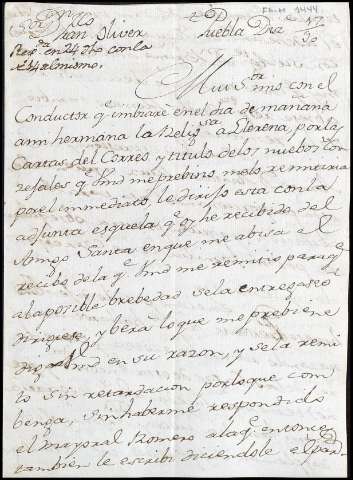 Juan Oliver
Puebla Dize 17
FA-M 1444
en 24 dho con la
el mismo.
Mui Sor mio con el
Conductor q embiaré en el dia de mañana
a mi hermana la Relig a Llerena, por las
Cartas del Correo, y titulo de los nuebos con
q Vmd me prebino melo remitiria
por el immediato, le dirijo esta con la
adjunta esquela q oy he recibido del
Amigo Santa en que me abisa el
recibo de la q Vmd me remitio para q
a la posible brebedad se la entregase o
dirigiese, y berá lo que me prebiene
diga a Vmd en su razon, y se la remi
to sin retardacion por lo que com
benga, sin haberme respondido
el Mayoral Romero a la q entonces
tambien le escribi diciendole el